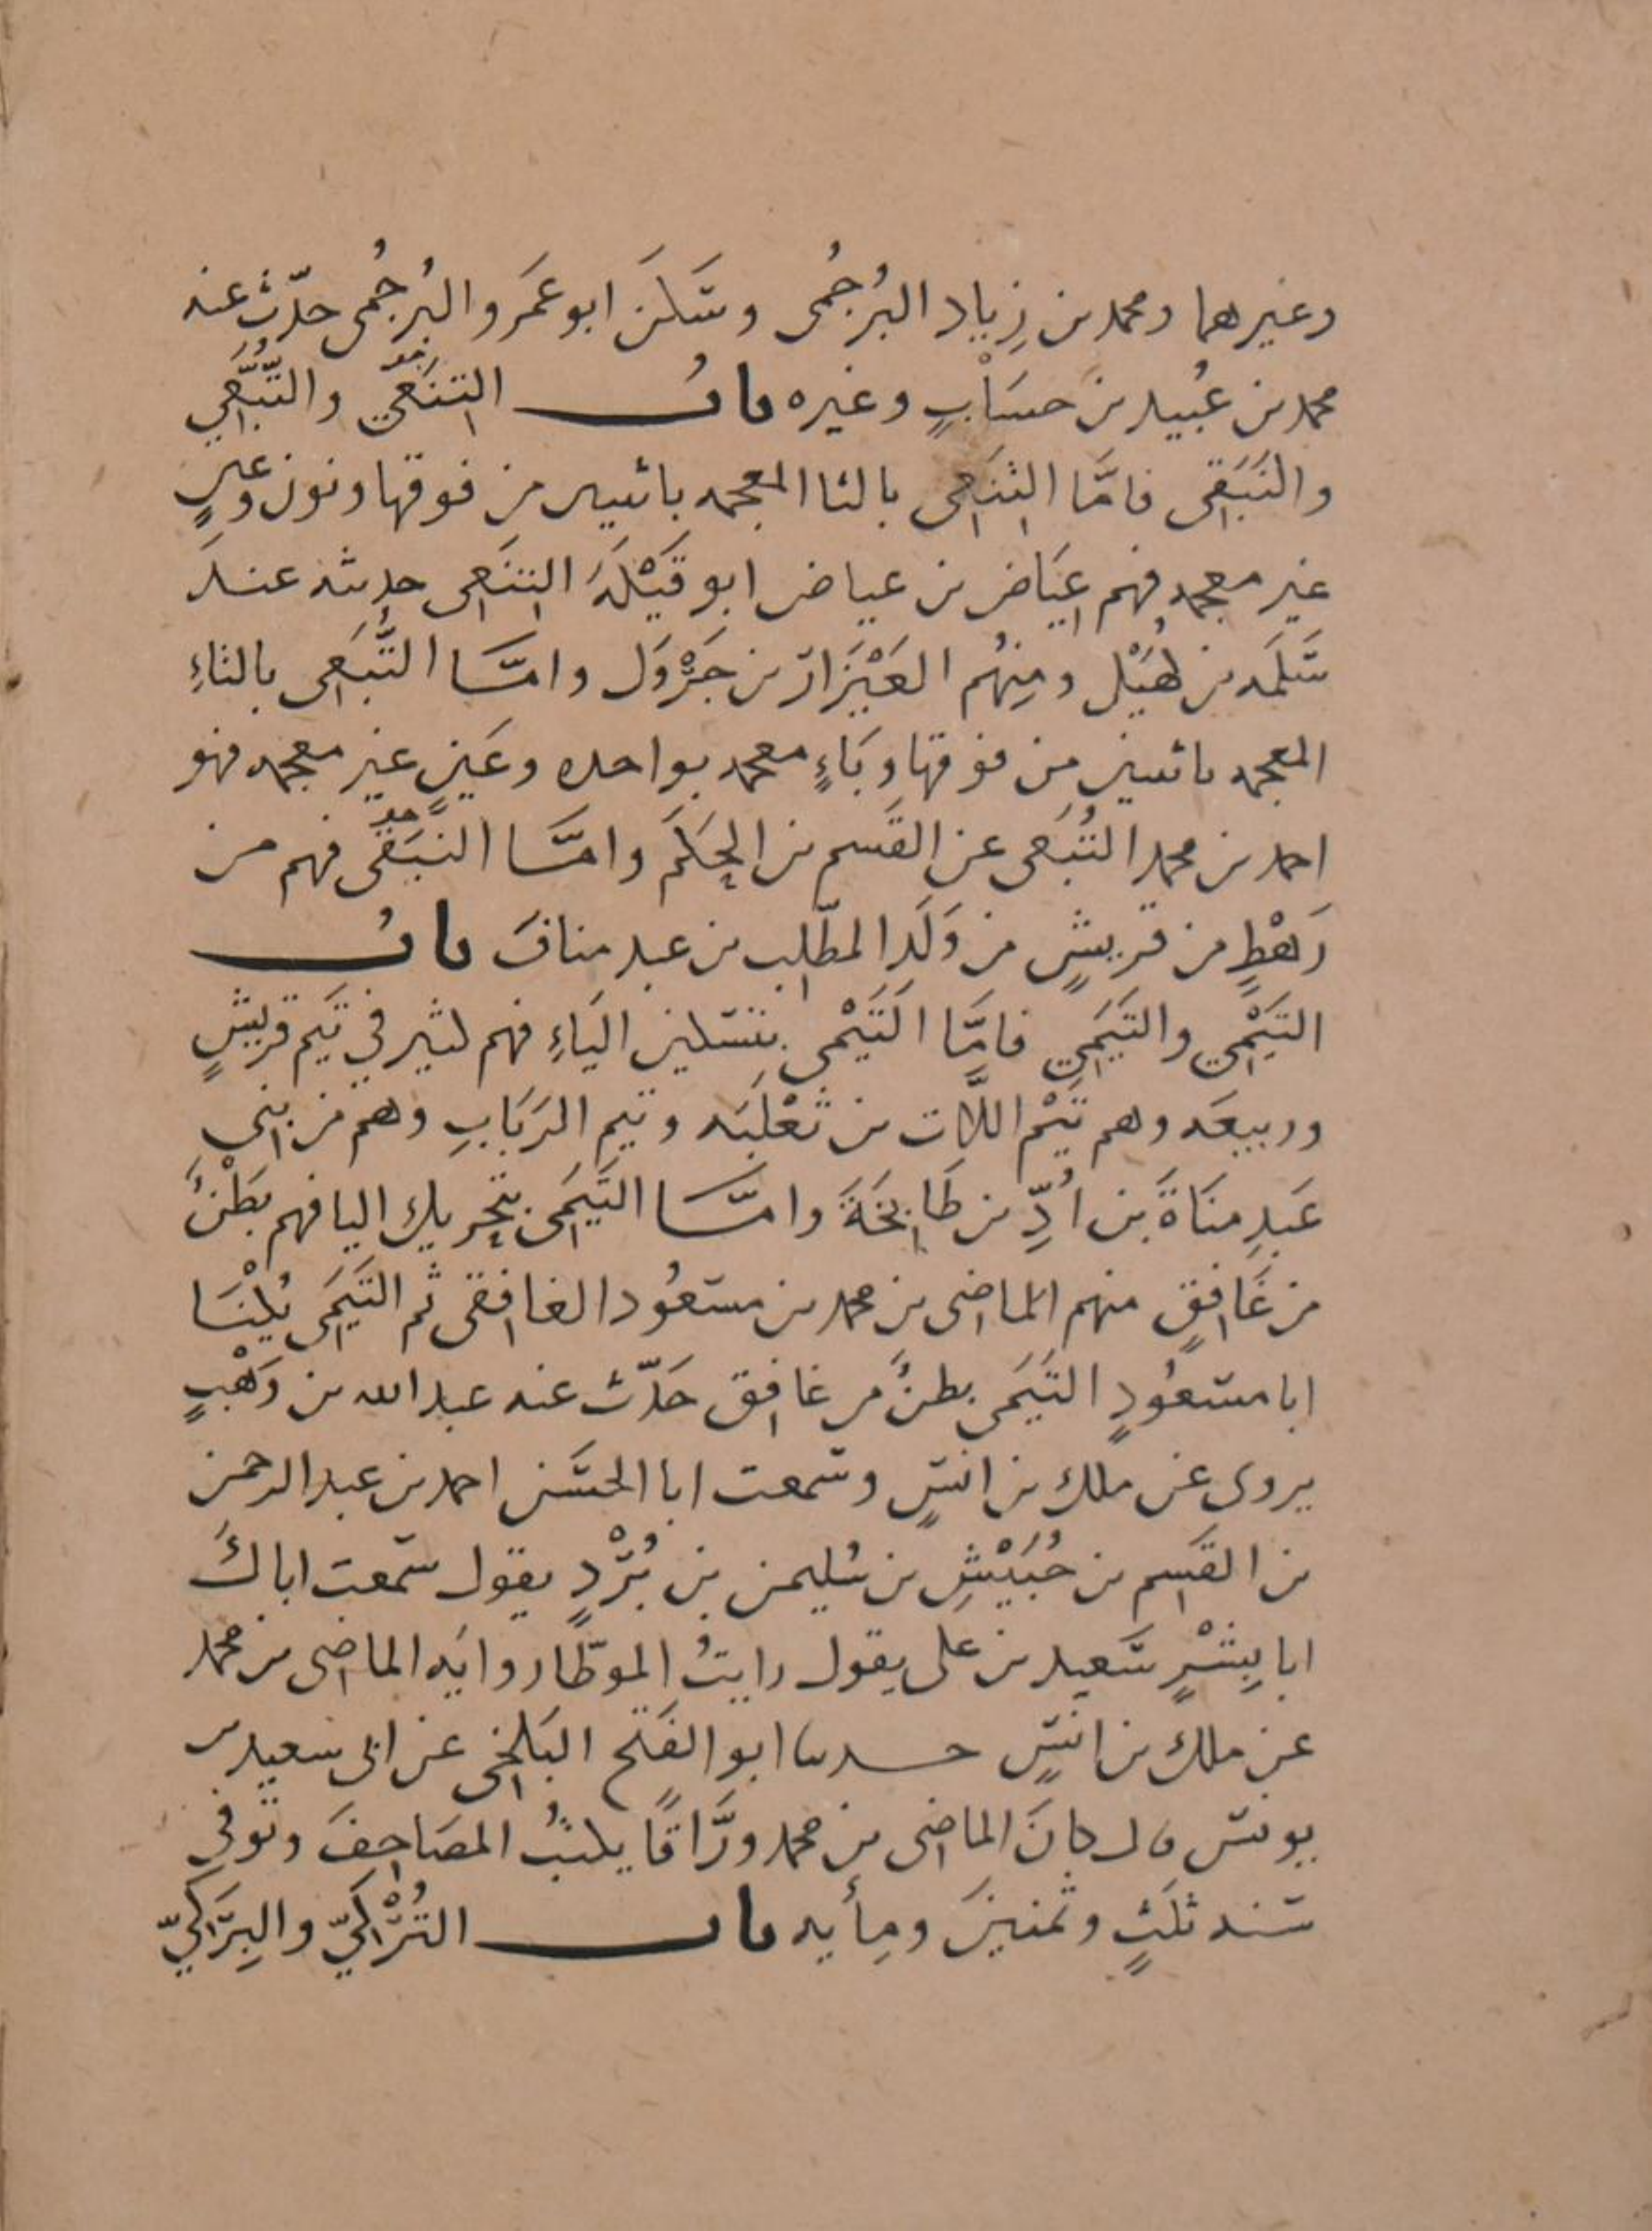 وغيرهما ومحمد بن زِياد البُرجُمى وسَكَن ابو عَمَرو البُرجُمى حدّث عنه
محمد بن عُبيد بن حسَابٍ وغيره باب التِنَعيّ والتُّبَّعي
والنَبَقى فامَّا التِنَعى بالتا المعجمه باثنين من فوقها ونون وعينٍ
غير معجمه فهم عِيَاض بن عياض ابو قَيْلَهَ التِنَعى حديثه عند
سَلَمَه بن كُهَيْل ومِنهُم العَيْزَار بن جَرْوَل وامّا التُّبَعى بالتاءِ
المعجمه باثنين من فوقها وبَاءٍ معجمه بواحده وعَينٍ غير معجمه فهو
احمد بن محمد التُبَعى عن القَسم بن الحَكَم وامَّا النَبَقى فهم من
رَهْطٍ من قريشٍ من وَلَدِ المطّلِب بن عبد مناف باب
التَيْمِي والتَيَمِي فامَّا التَيْمى بتسكين اليَاءِ فهم كثير في تَيم قريشٍ
وربيعَه وهم تَيْم اللَّات بن ثَعْلَبَه وتيم الرَبَابِ وهم من بَني
عَبدِ مَنَاةَ بن اُدِّ بن طَابِخَةَ وامّا التَيَمَى بتحريك اليا فهم بَطْنٌ
من غَافِقٍ منهم الماضى بن محمد بن مسعُود الغافقى ثم التَيَمَى يُكْنَا
ابا مسعُودٍ التَيَمى بطنٌ من غافِق حَدّث عنه عبد الله بن وَهْبٍ
يروى عن ملك بن انسٍ وسمعت ابا الحسَن احمد بن عبد الرحمن
بن القَسِم بن حُبَيْشِ بن سُليمن بن بُرْدٍ يقول سمعت اباكَ
ابا بِشْرٍ سَعيد بن على يقول رايتُ الموطّا روايَه الماضى بن محمد
عن ملك بن انسٍ حدثنا ابو الفَتح البَلخى عن ابى سعيد بن
يونس قال كانَ الماضى بن محمد ورَّاقًا يكتبُ المصَاحِفَ وتوفى
سَنه ثلَثٍ وثمنينَ ومِأيه باب التُرْكيّ والبِرَكيّ